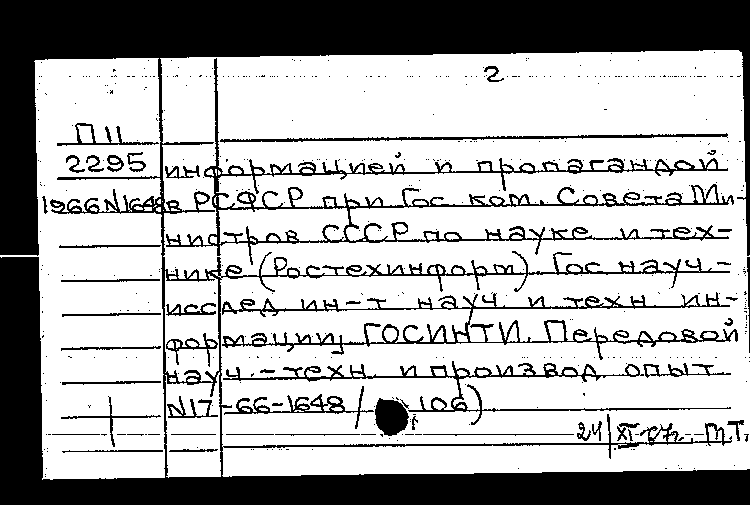 2
П11
2295 информацией и пропагандой
1966N1648 в РСФСР при Гос ком. Совета Ми-
нистров СССР по науке и тех-
нике (Ростехинформ). Гос науч.-
исслед ин-т науч. и техн ин-
формации ГОСИНТИ. Передовой
науч.-техн. и производ. опыт
N17-66-1648/ 106)
24 XI М.Т.